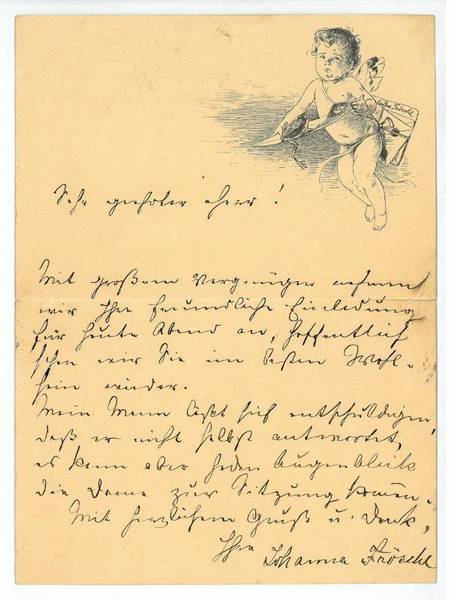 Sehr geehrter Herr!
Mit großem Vergnügen nehmen
wir Ihre freundliche Einladung
für heute Abend an, hoffentlich
sehen wir Sie im besten Wohl-
sein wieder.
Mein Mann läßt sich entschuldigen,
daß er nicht selbst antwortet,
es kann aber jeden Augenblick
die Dame zur Sitzung kommen.
Mit herzlichem Gruß u. Dank,
Ihre Johanna Fröschl